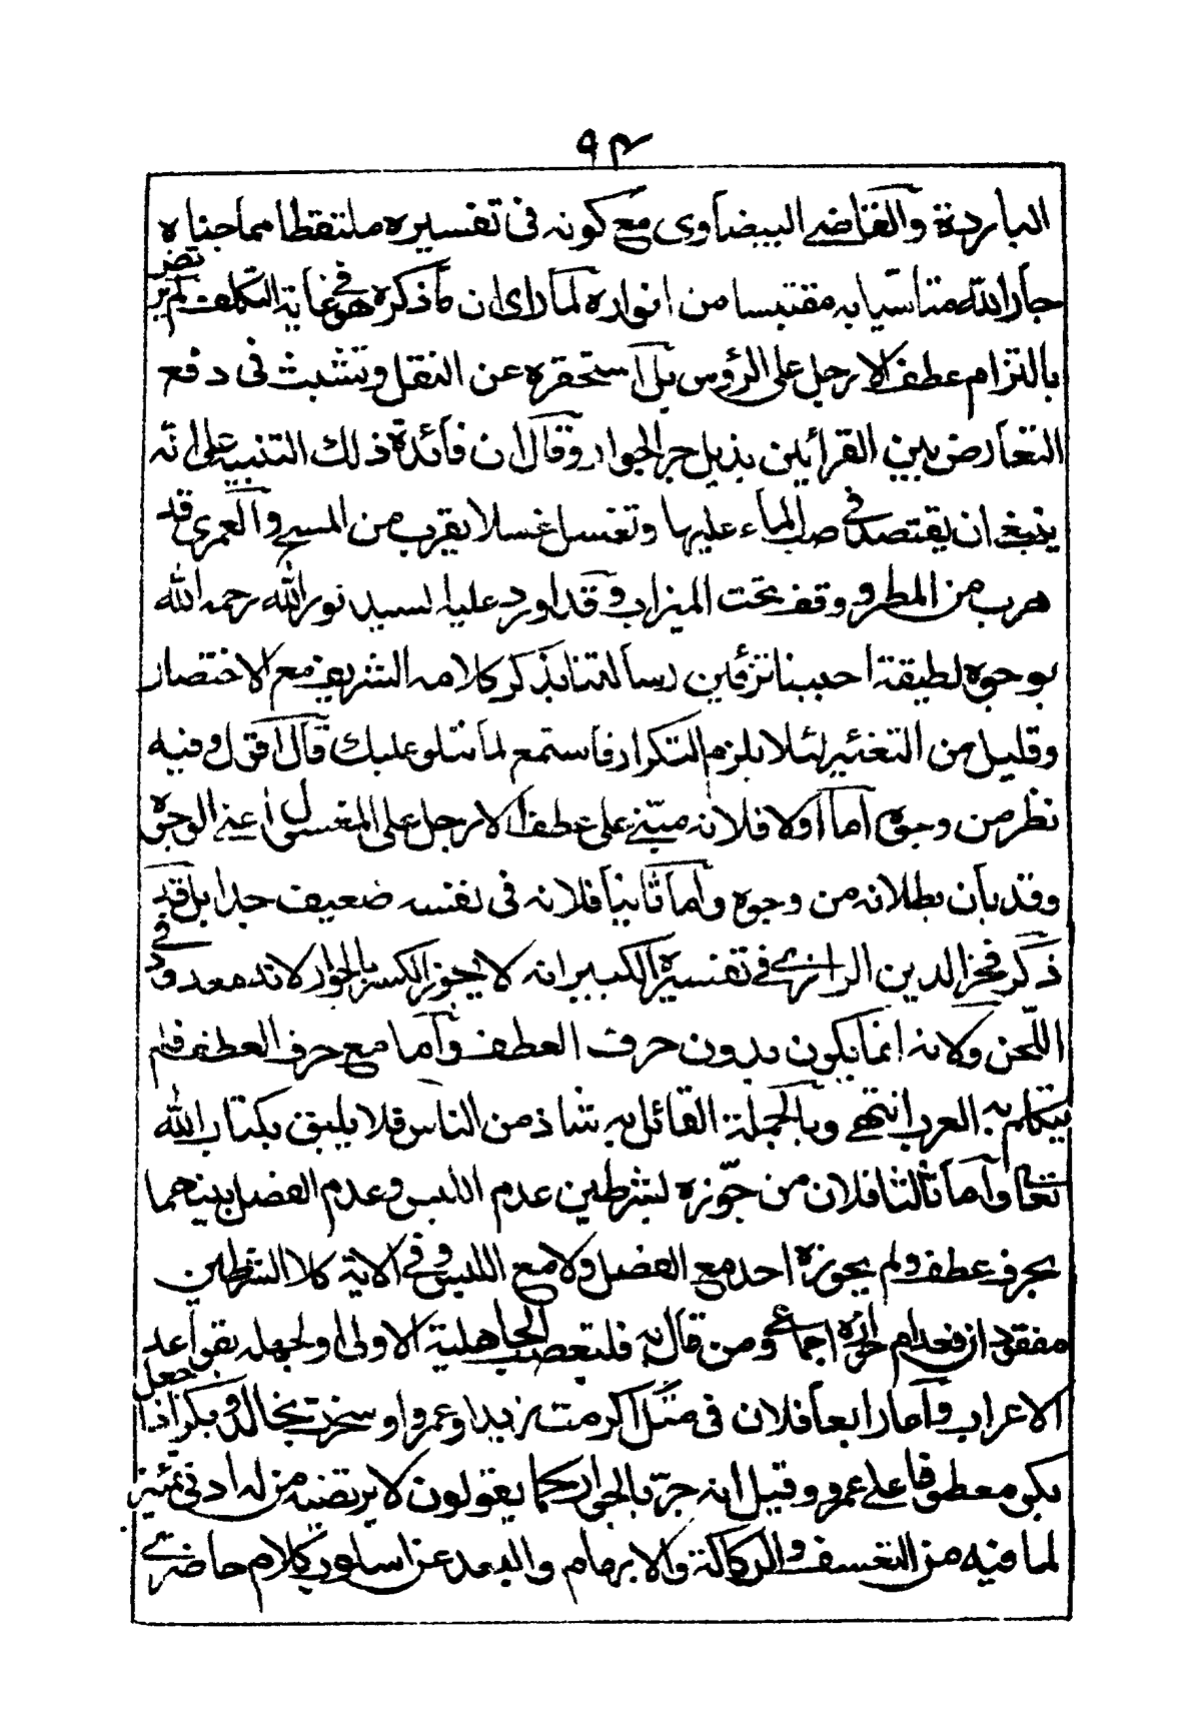 ٩٤
الباردة والقاضي البيضاوى مع كونه فى تفسيره ملتقطا مما جناه
جار الله متاسيا به مقتبسا من انواره لما راى ان ما ذكره هو فى غاية التكلف لم يرتض
بالتزام عطف الارجل على الرؤس بل استحقره عن النقل وتشبث فى دفع
التعارض بين القرائين بذيل جر الجوار وقال ان فائدة ذلك التنبيه على انه
ينبغي ان يقتصد فى صب الماء عليها وتغسل غسلا يقرب من المسح والعمرى قد
هرب من المطر و وقف تحت الميزاب وقد اورد عليه السيد نور الله رحمه الله
بوجوه لطيفة احببنا تزئين رسالتنا بذكر كلامه الشريف مع الاختصار
وقليل من التغئير لئلا يلزم التكرار فاستمع لما نتلو عليك قال اقول وفيه
نظر من وجوه اما اولا فلانه مبني على عطف الارجل على المغسول اعني الوجوه
وقد بان بطلانه من وجوه واما ثانيا فلانه فى نفسه ضعيف جدا بل قد
ذكر فخر الدين الرازي في تفسيره الكبير انه لا يجوز الكسر بالجوار لانه معدود في
اللحن ولانه انما يكون بدون حرف العطف واما مع حرف العطف فلم
يتكلم به العرب انتهى وبالجملة القائل به شاذ من الناس فلا يليق بكتاب الله
تعالى واما ثالثا فلان من جوزه بشرطين عدم اللبس وعدم الفصل بينهما
بحرف عطف ولم يجوزه احد مع الفصل ولا مع اللبس و في الاية كلا الشرطين
مفقود ان فعدم جوازه اجماعي ومن قال به فلتعصب الجاهلية الاولى او لجهله بقواعد
الاعراب واما رابعا فلان فى مثل اكرمت زيدا وعمروا وسخرت بخالد وبكر اذا جعل
بكر معطوفا على عمرو وقيل انه جر بالجوار كما يقولون لا يرتضيه من له ادنى تمئيز
لما فيه من التعسف والركاكة والابهام والبعد عن اسلوب كلام حاضري